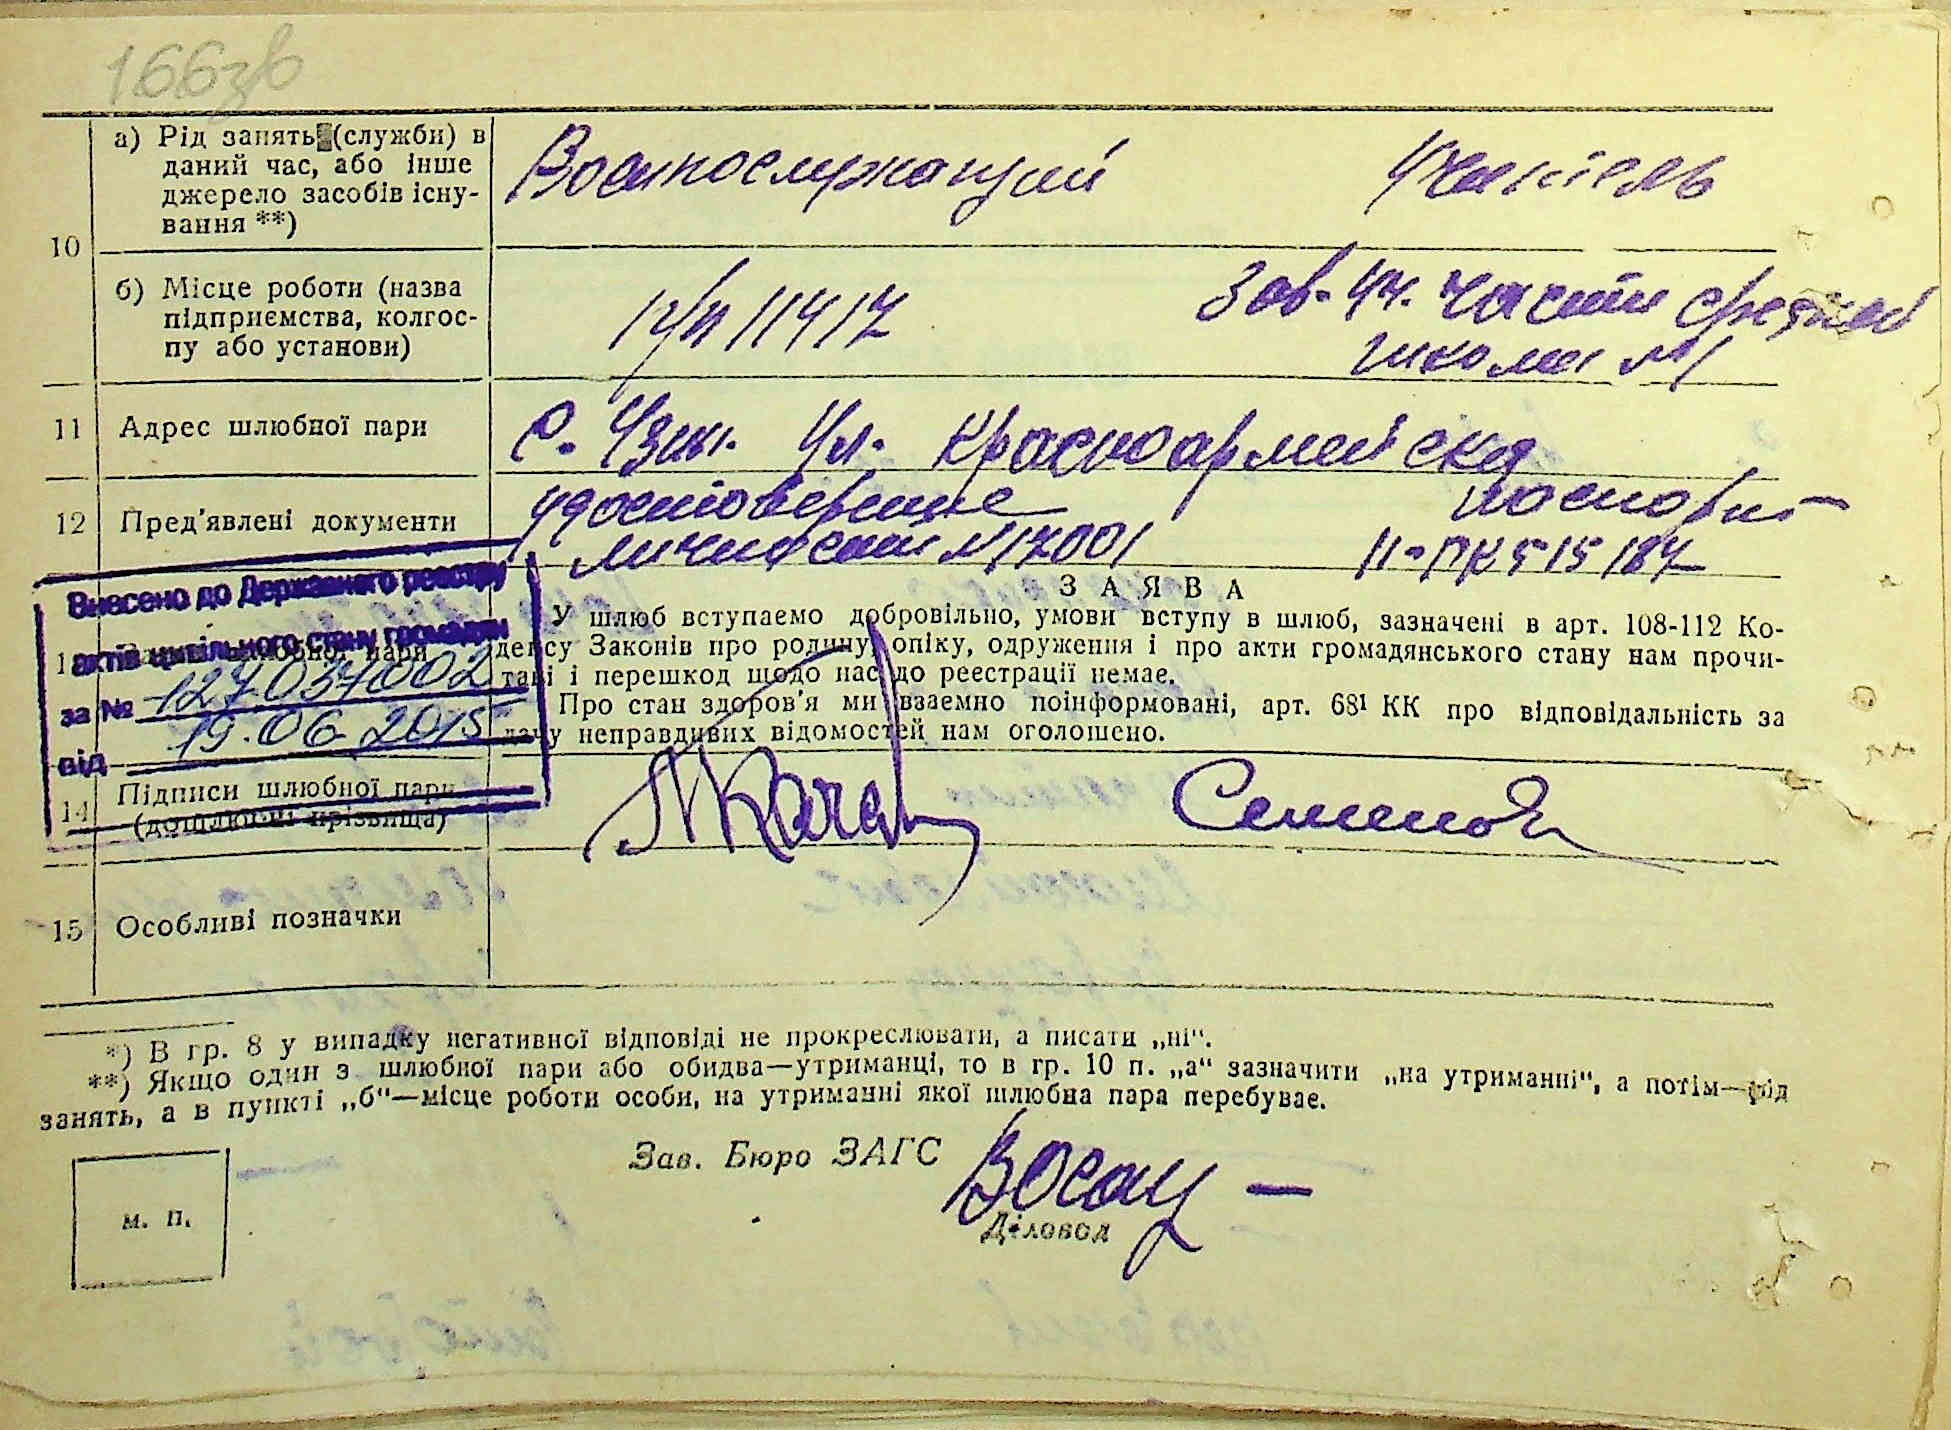 166зв
10
а) Рід занять (служби) в
даний час, або інше
джерело засобів існу-
вання **)
Военнослужащий
Учитель
б) Місце роботи (назва
підприємства, колгос-
пу або установи)
п/п 11417
Зав. уч. части средней
школы №1
11
Адрес шлюбної пари
с. Узин. Ул. Красноармейска
12
Пред'явлені документи
удостоверение
личности №17001
паспорт
II-ПК 515187
Внесено до Державного реєстру
актів цивільного стану громадян
за № 127037002
від 19.06.2015
шлюбної пари
ЗАЯВА
У шлюб вступаємо добровільно, умови вступу в шлюб, зазначені в арт. 108-112 Ко-
дексу Законів про родину, опіку, одруження і про акти громадянського стану нам прочи-
тані і перешкод щодо нас до реєстрації немає.
Про стан здоров'я ми взаємно поінформовані, арт. 68¹ КК про відповідальність за
дачу неправдивих відомостей нам оголошено.
14
Підписи шлюбної пари
(дошлюбні прізвища)
Семенов
15
Особливі позначки
*) В гр. 8 у випадку негативної відповіді не прокреслювати, а писати „ні“.
**) Якщо один з шлюбної пари або обидва—утриманці, то в гр. 10 п. „а“ зазначити „на утриманні“, а потім—рід
занять, а в пункті „б“—місце роботи особи, на утриманні якої шлюбна пара перебуває.
Зав. Бюро ЗАГС
Діловод
м. п.